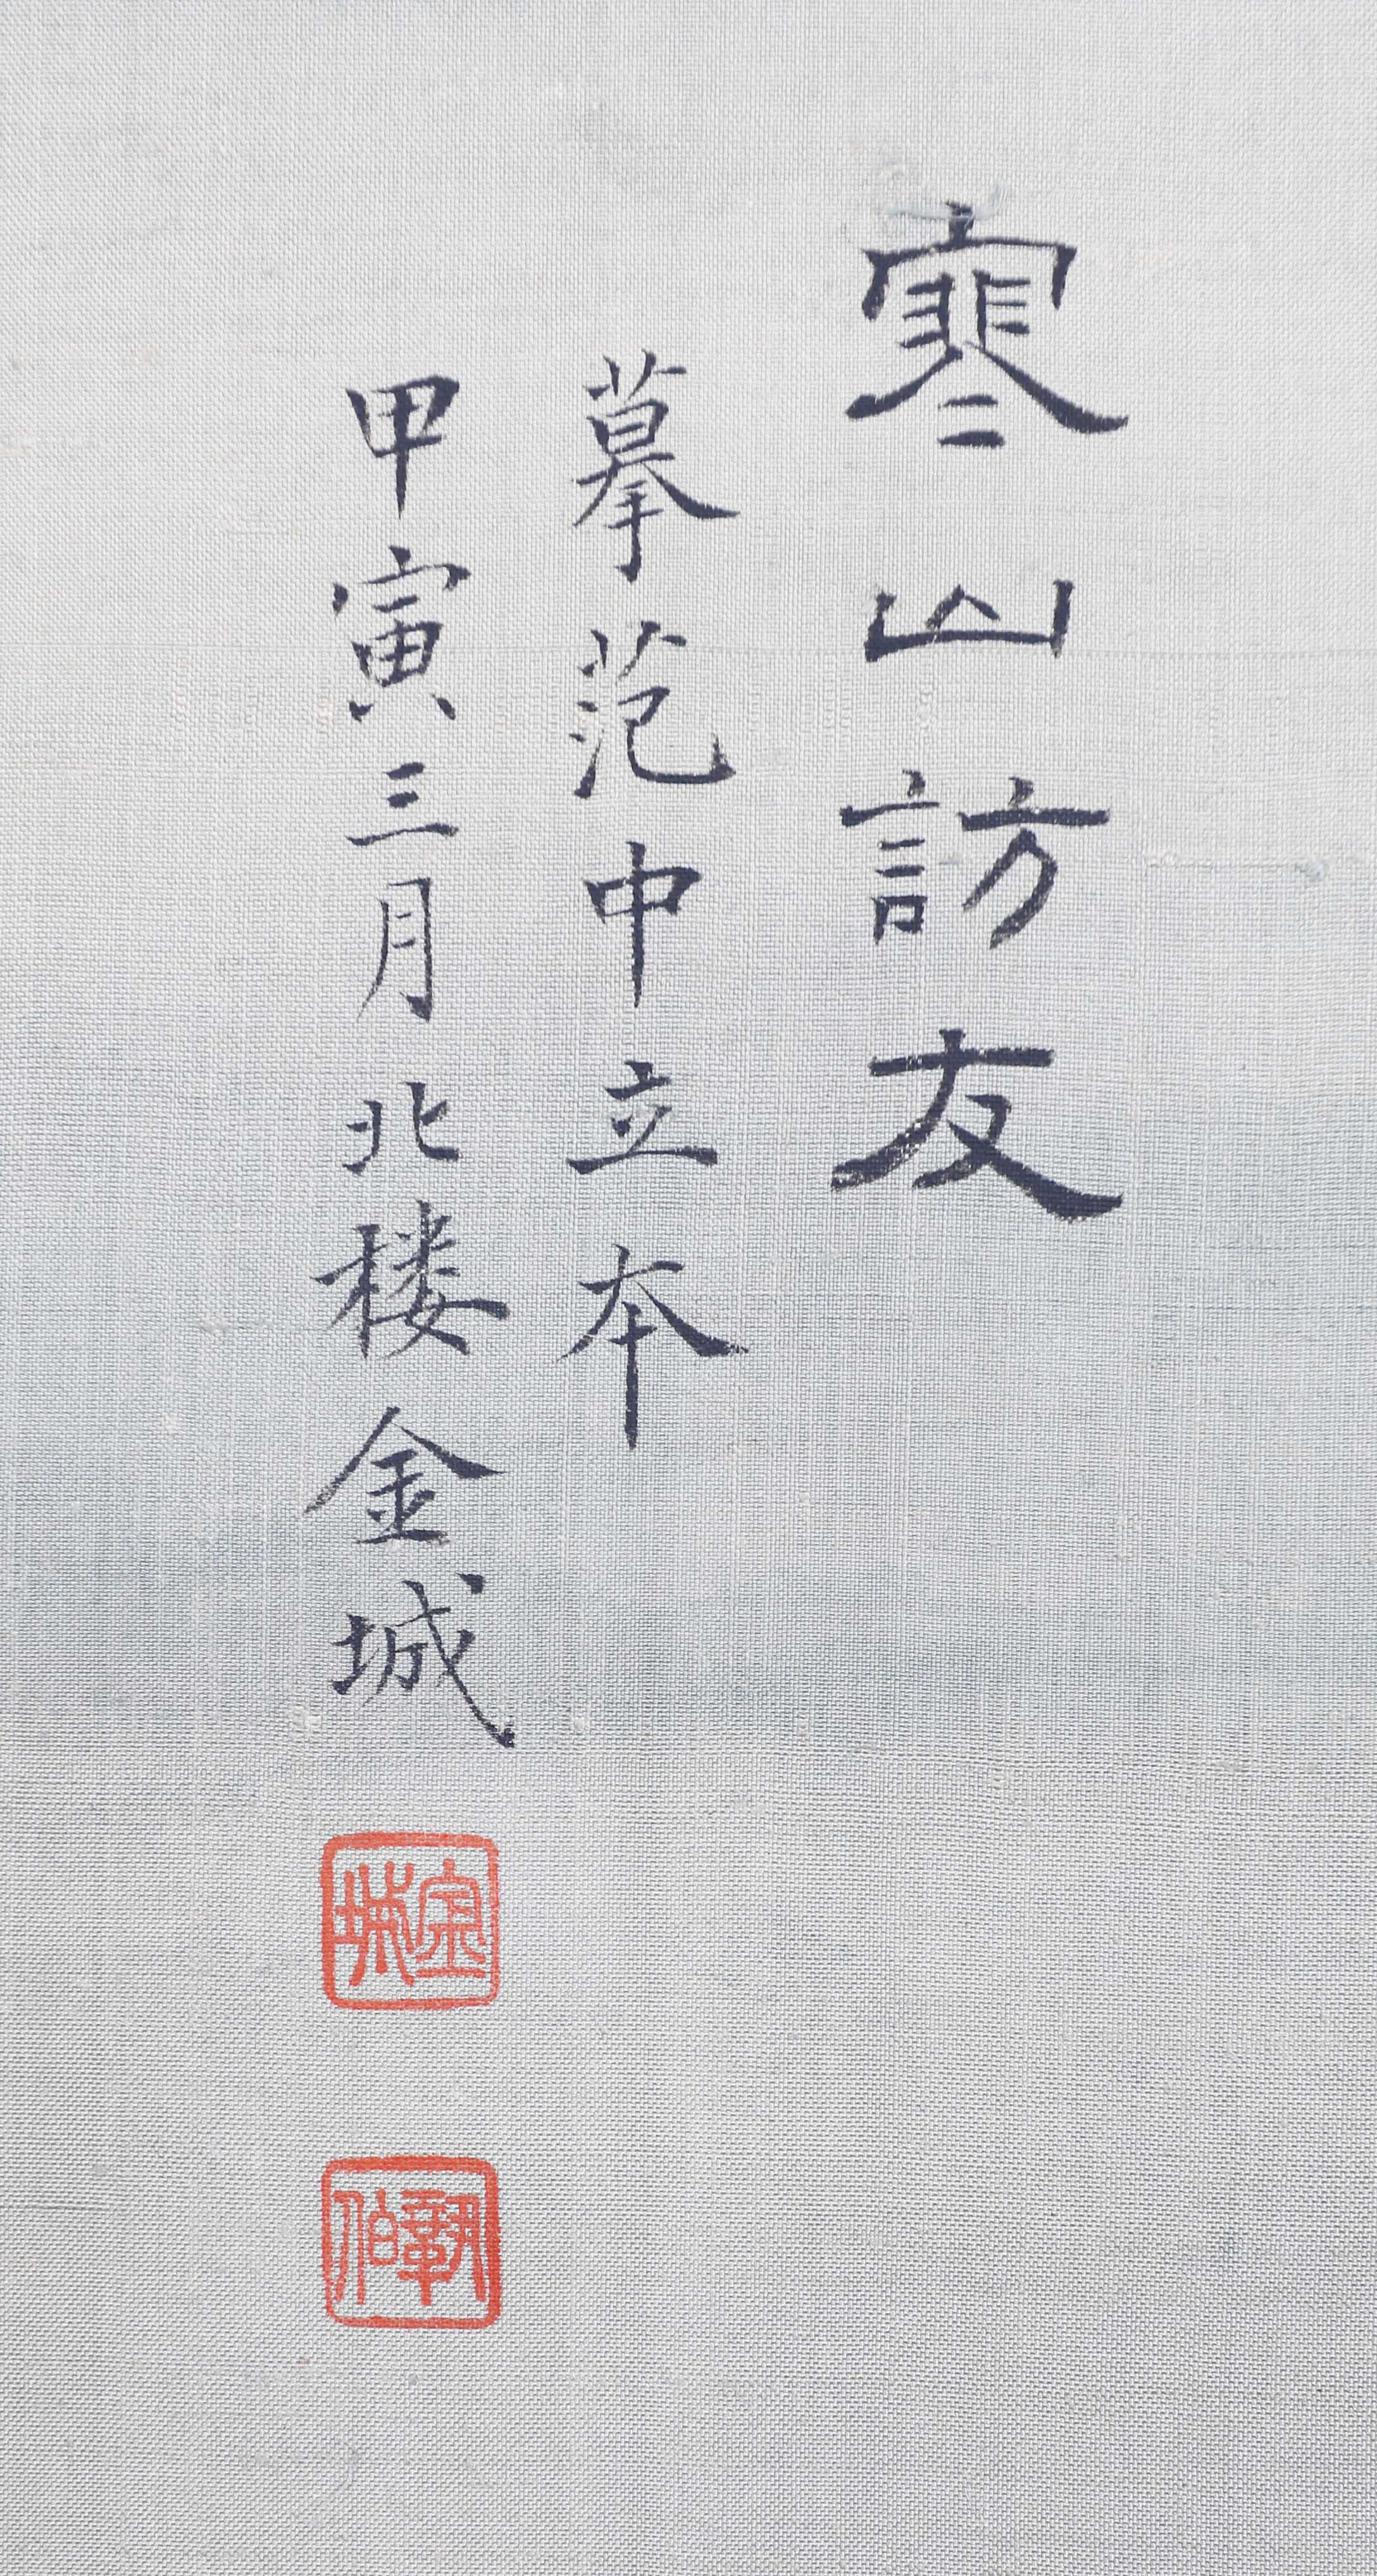 寒山訪友
摹范中立本
甲寅三月北楼金城
金城
鞏伯